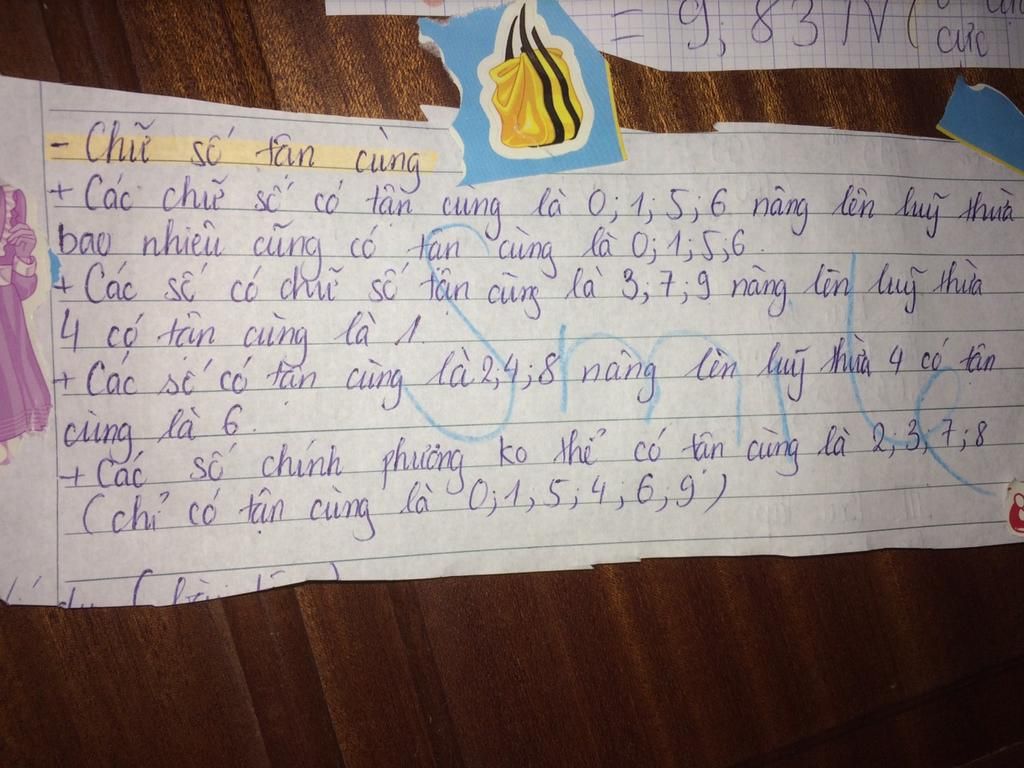 = 9,83 N (
cực
- Chữ số tận cùng
+ Các chữ số có tận cùng là 0; 1; 5; 6 nâng lên luỹ thừa
bao nhiêu cũng có tận cùng là 0; 1; 5; 6.
+ Các số có chữ số tận cùng là 3; 7; 9 nâng lên luỹ thừa
4 có tận cùng là 1.
+ Các số có tận cùng là 2; 4; 8 nâng lên luỹ thừa 4 có tận
cùng là 6.
+ Các số chính phương ko thể có tận cùng là 2; 3; 7; 8
(chỉ có tận cùng là 0; 1; 5; 4; 6; 9)
Smile